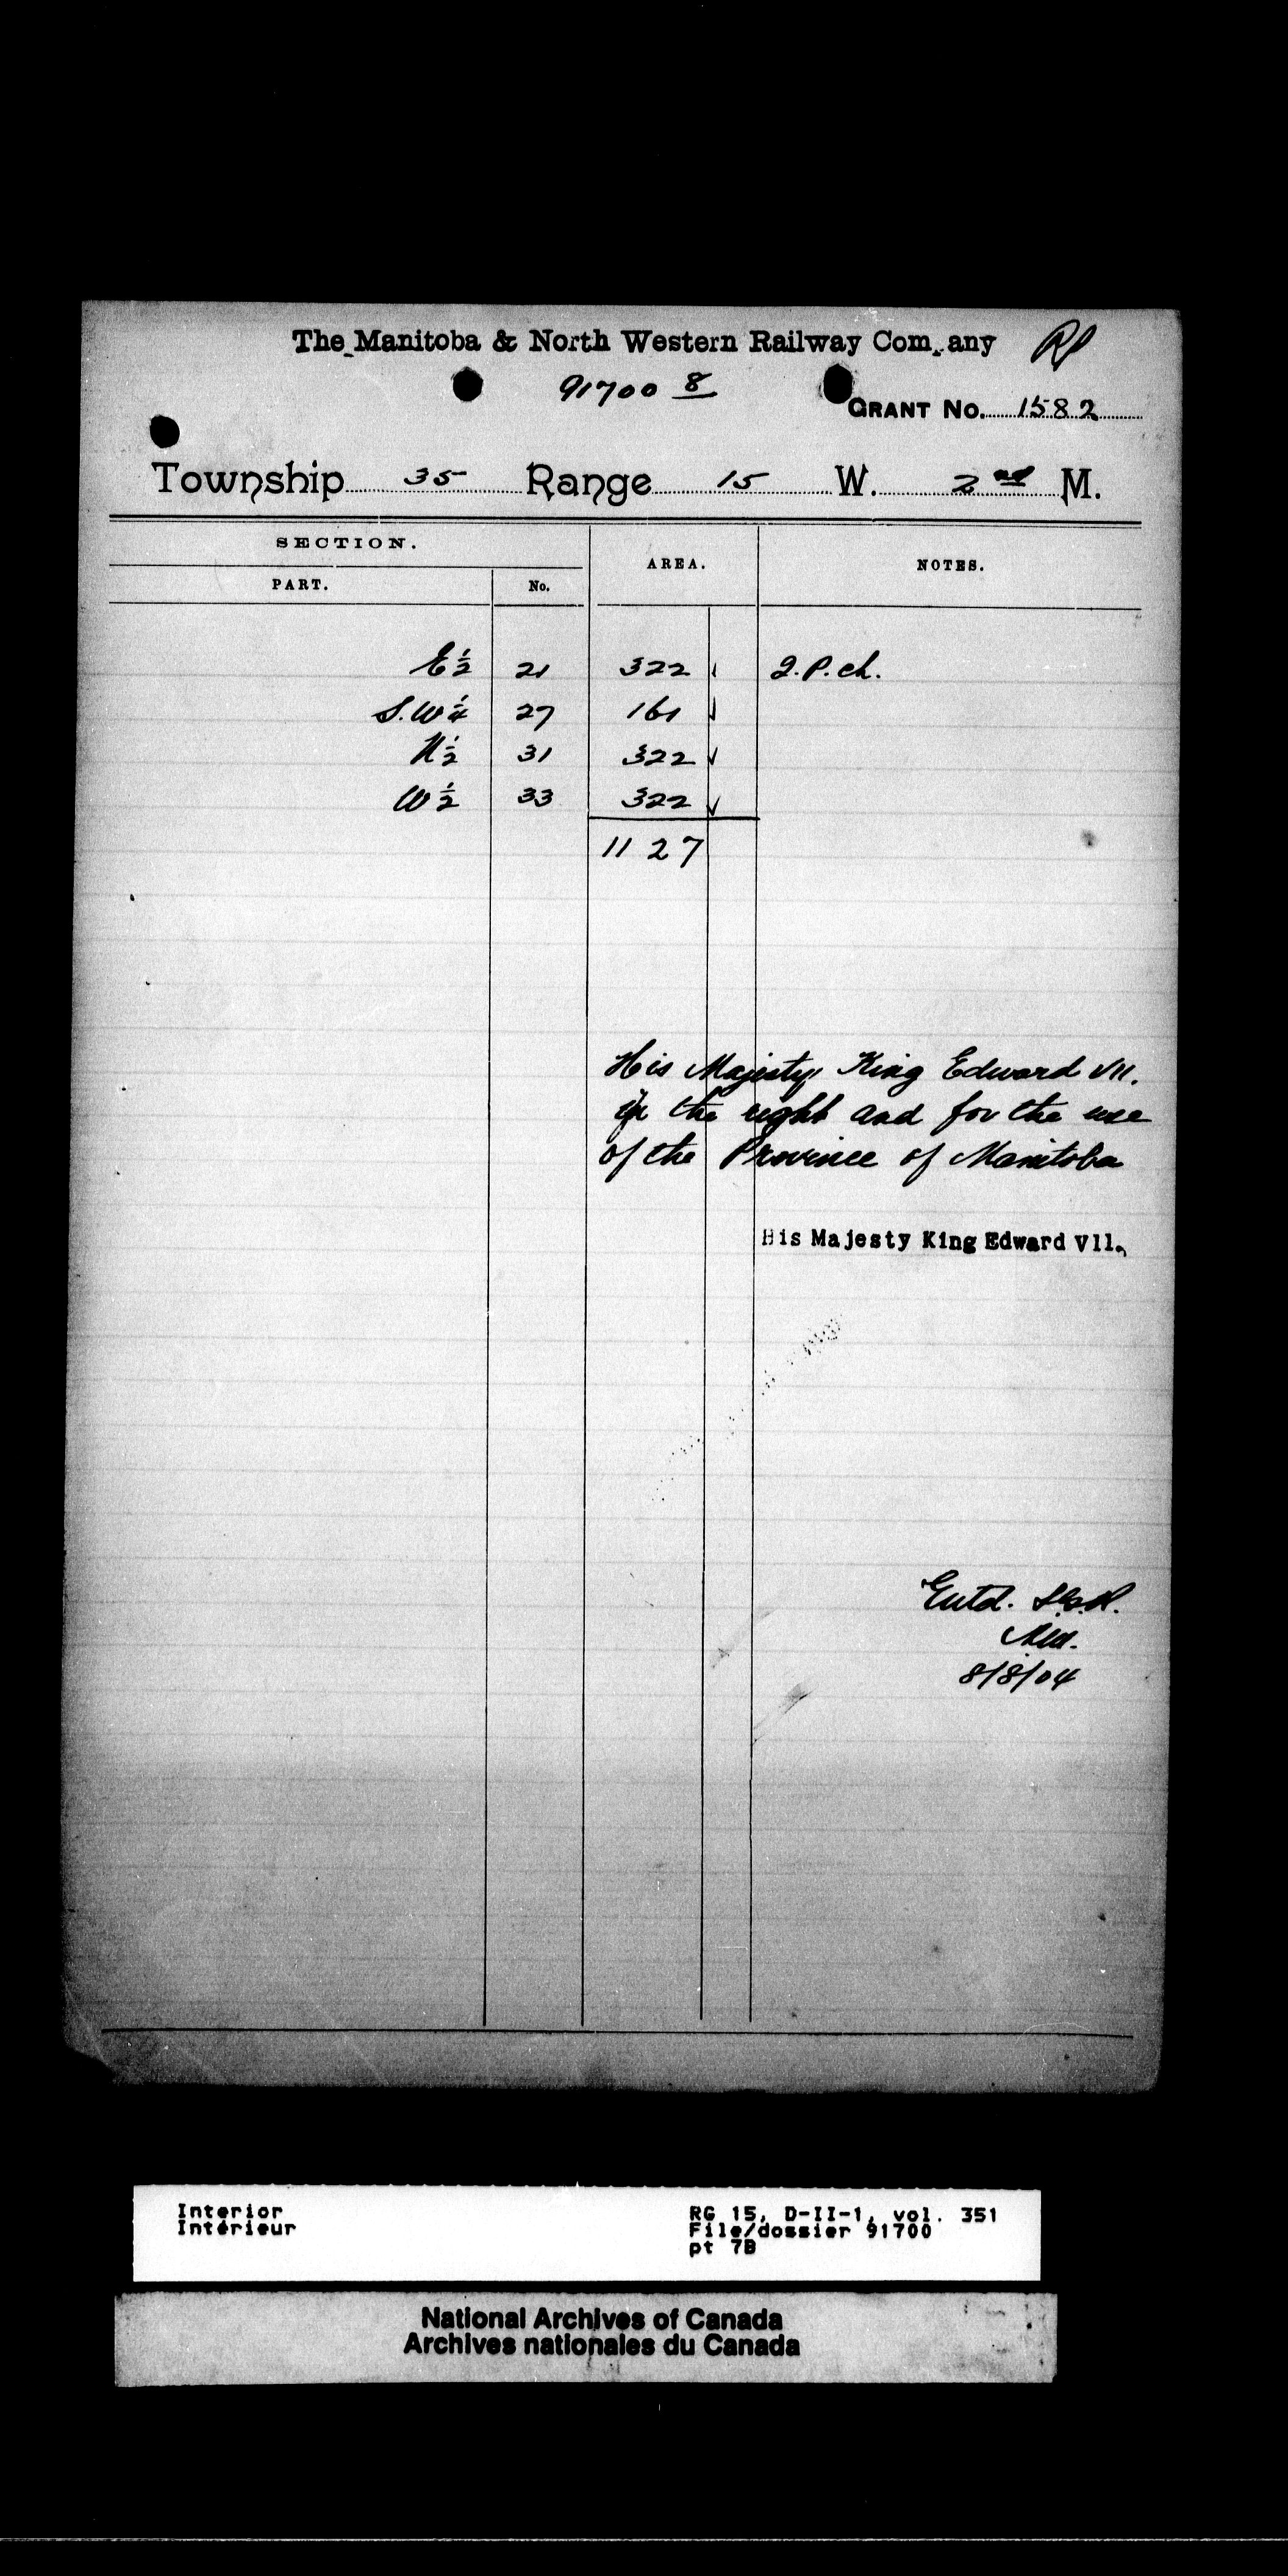 The Manitoba & North Western Railway Com.any
91700 8
GRANT No. 1582
Township 35 Range 15 W. 2nd M.
SECTION.
AREA.
NOTES.
PART.
No.
E½ 21 322
S.W¼ 27 161
N½ 31 322
W½ 33 322
1127
His Majesty King Edward VII.
in the right and for the use
of the Province of Manitoba
His Majesty King Edward Vll.
Entd.
8/8/04
Interior
Intérieur
RG 15, D-II-1, vol. 351
File/dossier 91700
pt 7B
National Archives of Canada
Archives nationales du Canada